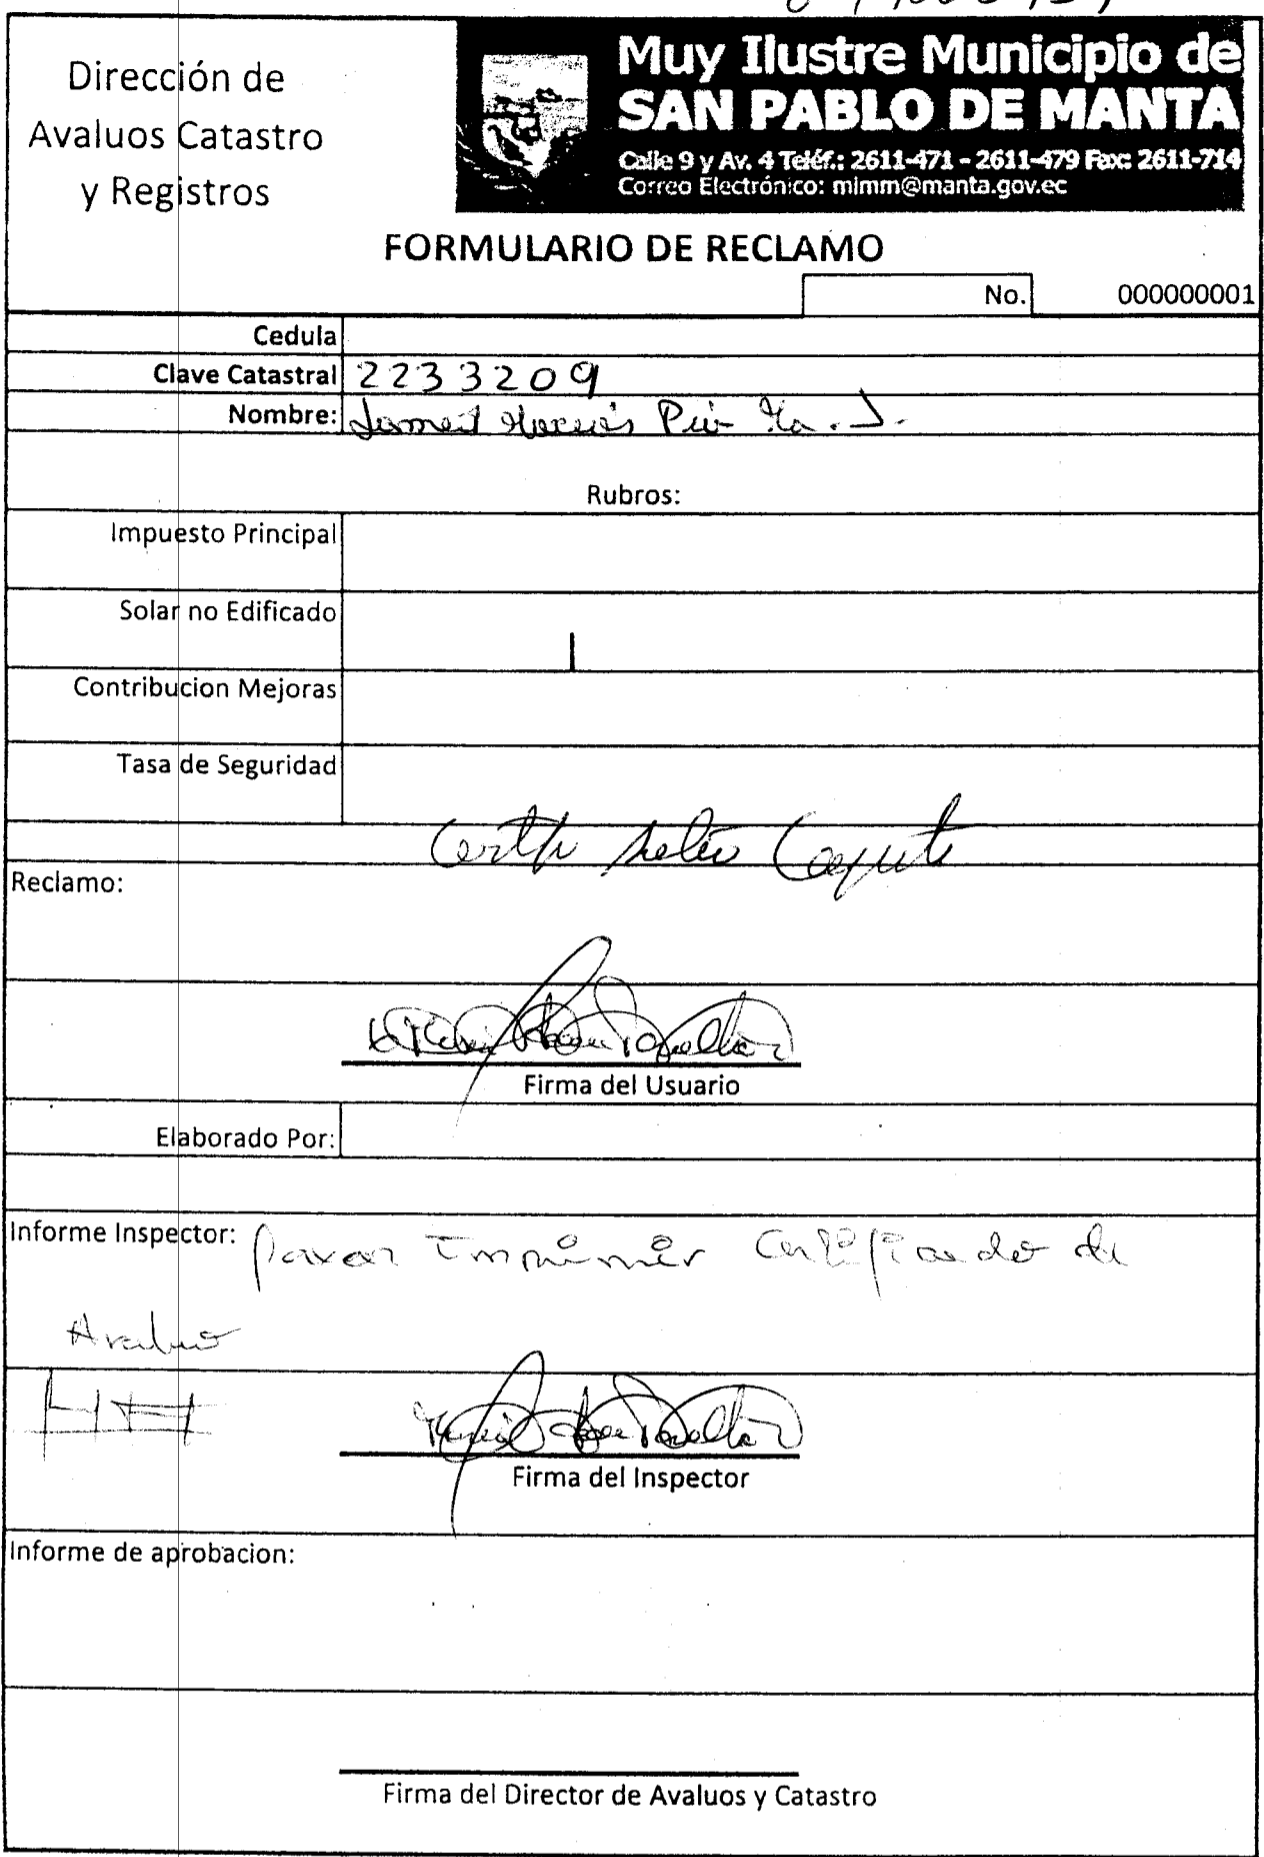 Dirección de
Avaluos Catastro
y Registros
Muy Ilustre Municipio de
SAN PABLO DE MANTA
Calle 9 y Av. 4 Teléf.: 2611-471 - 2611-479 Fax: 2611-714
Correo Electrónico: mimm@manta.gov.ec
FORMULARIO DE RECLAMO
No. 000000001
Cedula
Clave Catastral 2233209
Nombre:
Rubros:
Impuesto Principal
Solar no Edificado
Contribucion Mejoras
Tasa de Seguridad
Reclamo:
Firma del Usuario
Elaborado Por:
Informe Inspector: Imprimir Certificado de
Avaluo
Firma del Inspector
Informe de aprobacion:
Firma del Director de Avaluos y Catastro